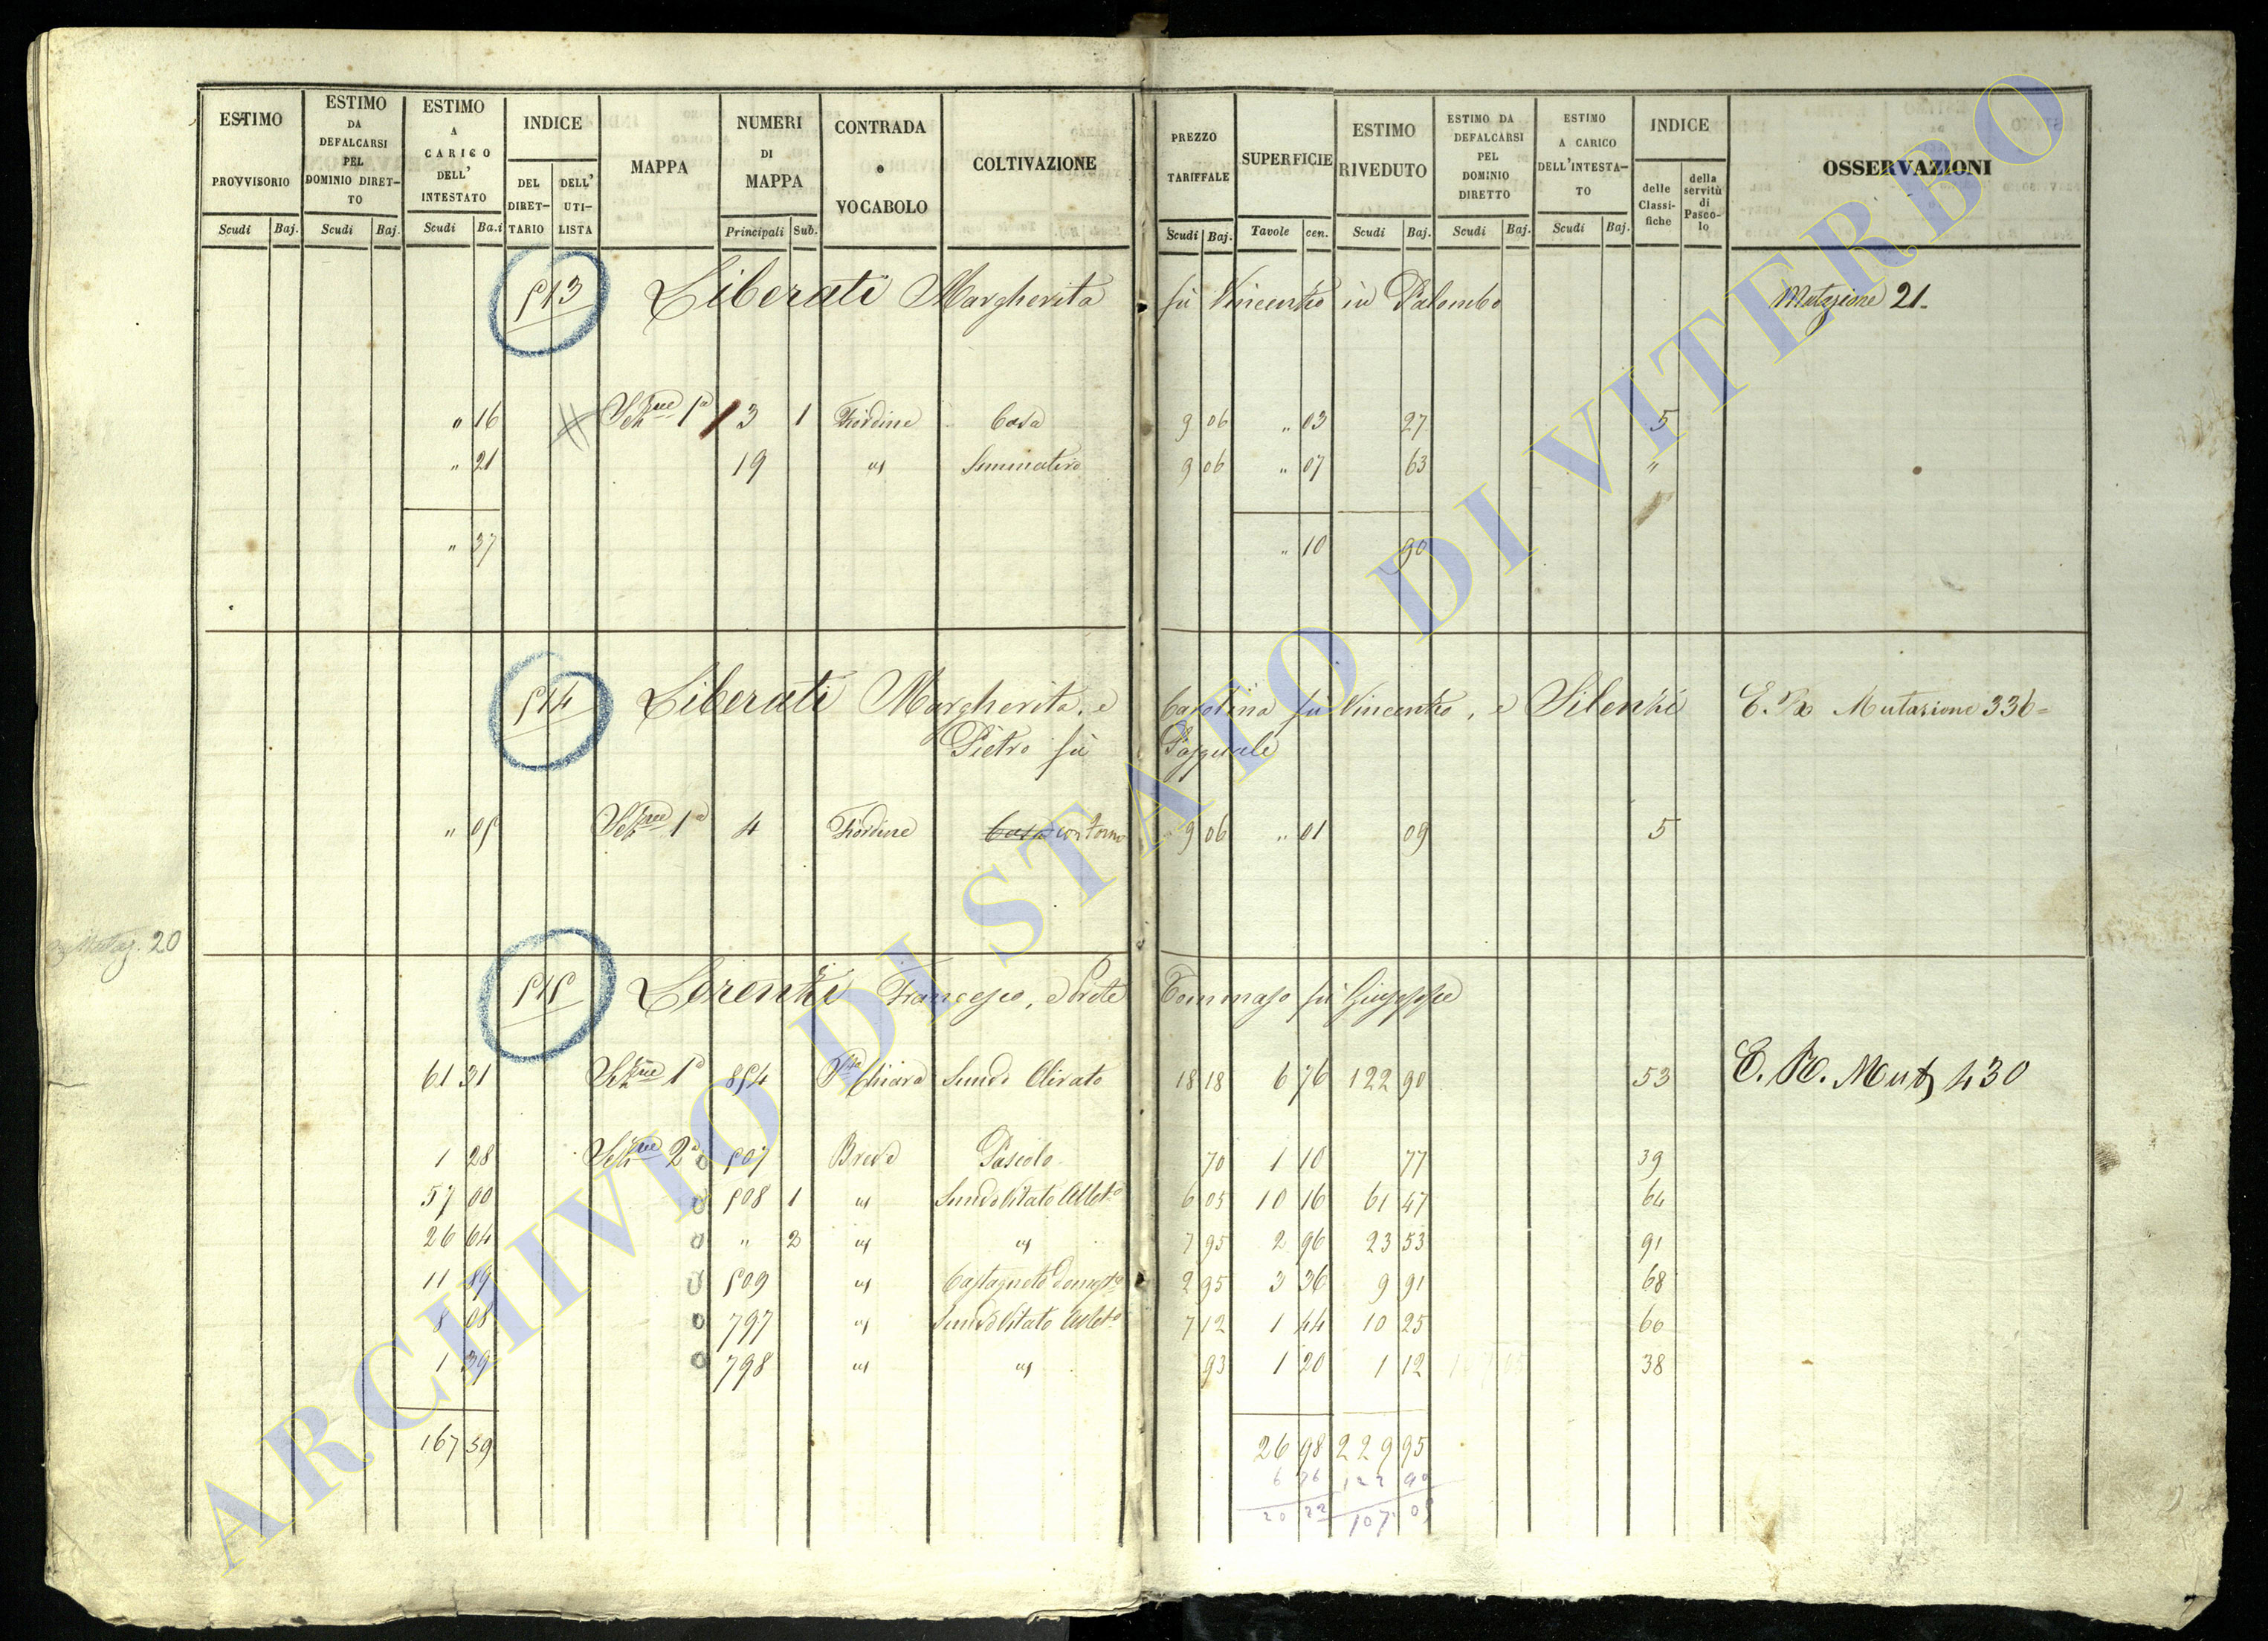 ESTIMO PROVVISORIO Scudi Baj.
ESTIMO DA DEFALCARSI PEL DOMINIO DIRETTO Scudi Baj.
ESTIMO A CARICO DELL' INTESTATO Scudi Ba.i
INDICE DEL DIRETTARIO DELL' UTILISTA
MAPPA
NUMERI DI MAPPA Principali Sub.
CONTRADA o VOCABOLO
COLTIVAZIONE
PREZZO TARIFFALE Scudi Baj.
SUPERFICIE Tavole cen.
ESTIMO RIVEDUTO Scudi Baj.
ESTIMO DA DEFALCARSI PEL DOMINIO DIRETTO Scudi Baj.
ESTIMO A CARICO DELL'INTESTATO Scudi Baj.
INDICE delle Classifiche della servitù di Pascolo
OSSERVAZIONI
513 Liberati Margherita fù Vincenzo in Palombo Mutazione 21
" 16 Sezne 1a 13 1 Fiordine Casa 9 06 " 03 27 5
" 21 19 " Seminativo 9 06 " 07 63 "
" 37 " 10 90
514 Liberati Margherita, e Carolina fù Vincenzo, e Silenzi Mutazione 336
Pietro fù Pasquale
" 05 Sezne 1a 4 Fiordine Casa con forno 9 06 " 01 09 5
Mutaz. 20
515 Lorenzi Francesco, e Prete Tommaso fù Giuseppe
61 31 Sezne 1a 854 Sta Chiara Semvo Olivato 18 18 6 76 122 90 53 Mutaz 430
1 28 Sezne 2a 507 Pascolo 70 1 10 77 39
57 00 508 1 " Semvo Vitato Albto 6 05 10 16 61 47 64
26 64 " 2 " " 7 95 2 96 23 53 91
11 89 509 " Castagneto domesto 2 95 3 36 9 91 68
8 08 797 " Semvo Vitato Albto 7 12 1 44 10 25 60
1 39 798 " " 93 1 20 1 12 38
167 59 26 98 229 95
6 76 122 90
20 22 107 05
ARCHIVIO DI STATO DI VITERBO